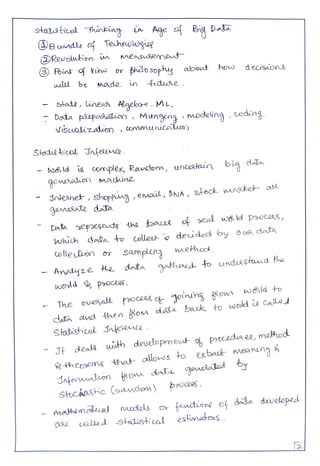 Statistical Thinking in Age of Big Data
① Bundle of Technologies
② Revolution in measurement
③ Point of view or philosophy about how decisions
will be made in future.
- Stats, Linear Algebra, ML,
- Data preparation, Munging, modeling, coding,
visualization, communication
Statistical Inference.
- World is complex, Random, uncertain big data
generation machine
- Internet, shopping, email, DNA, stock market all
generate data
- Data represents the traces of real world process,
which data to collect is decided by our data
collection or sampling method.
- Analyze the data gathered to understand the
world & process.
- The overall process of going from world to
data and then from data back to world is called
Statistical Inference.
- It deals with development of procedures, method
& theorems that allows to extract meaning &
Information from data generated by
stochastic (random) process.
- mathematical models or functions of data developed
are called statistical estimators.
2